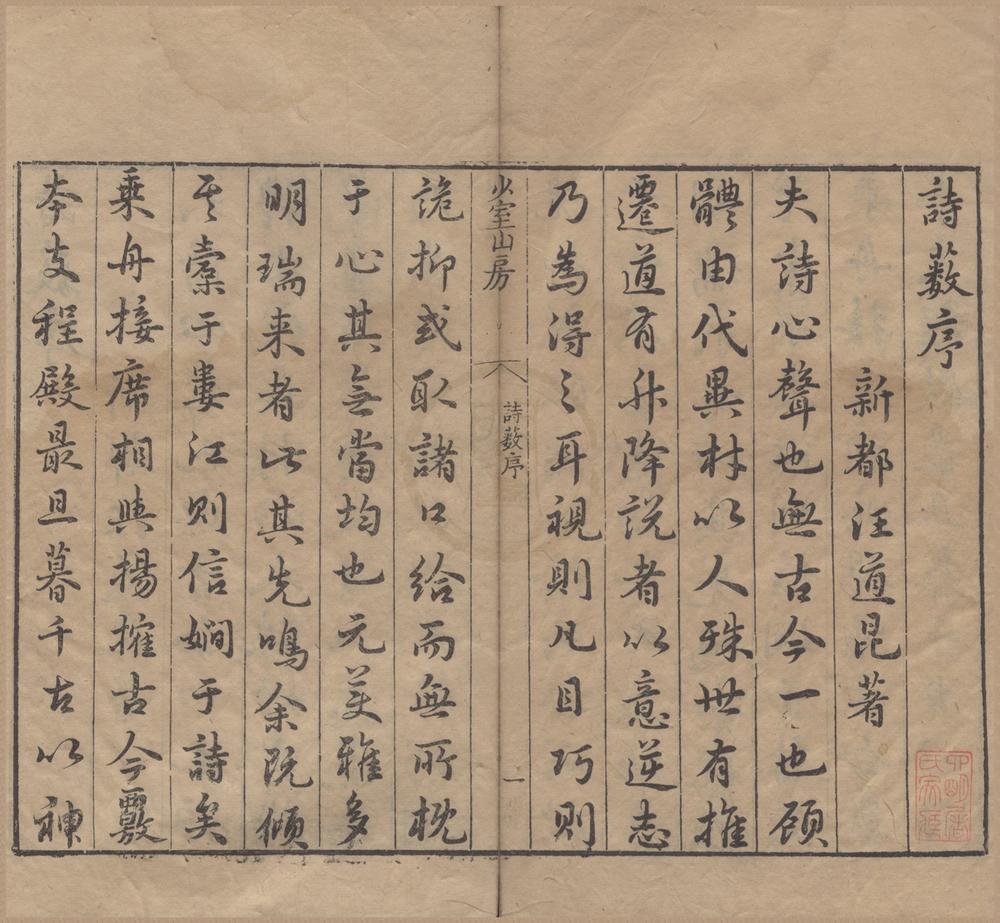 詩薮序
新都汪道昆著
夫詩心聲也無古今一也顧
體由代異材以人殊世有推
遷道有升降説者以意逆志
乃為得之耳視則凡目巧則
詭抑或取諸口給而無所概
于心其無當均也元美雅多
明瑞来者此其先鳴余既傾
其橐于婁江則信嫺于詩矣
乗舟接席相與揚搉古今覈
本支程殿最旦暮千古以神
少室山房
詩薮序
一